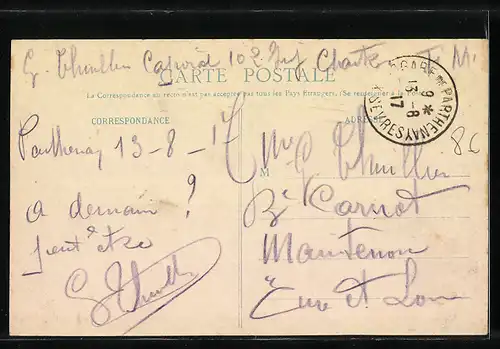 G. Thuillier Caporal 102 Inf Chartres F. M.
CARTE POSTALE
La Correspondance au recto n'est pas acceptée par tous les Pays Etrangers. (Se renseigner à la Poste)
CORRESPONDANCE
ADRESSE
GARE DE PARTHENAY
9 *
13-8
17
SEVRES
86
Parthenay 13-8-17
a demain ?
peut etre
G Thuillier
M
Me G Thuillier
Rue Carnot
Maintenon
Eure et Loir